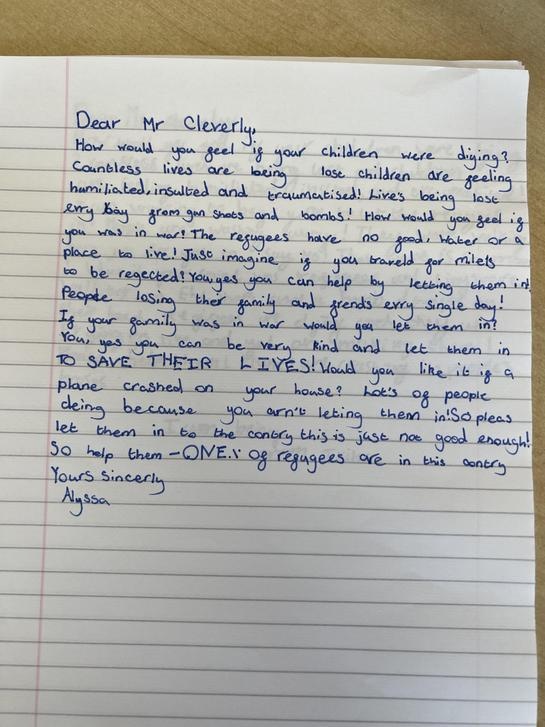 Dear Mr Cleverly,
How would you feel if your children were diying?
Countless lives are being lost children are feeling
humiliated, insulted and traumatised! Live's being lost
erry bay from gun shots and bombs! How would you feel if
you was in war? The refugees have no food, water or a
place to live! Just imagine if you traveld for milels
to be regected! You, yes you can help by letting them in!
People losing ther family and frends evry single day!
If your family was in war would you let them in?
You, yes you can be very kind and let them in
TO SAVE THEIR LIVES! Would you like it if a
plane crashed on your house? Lot's of people
deing because you arn't leting them in! So pleas
let them in to the contry this is just not good enough!
So help them - ONE% of refugees are in this contry
Yours sincerly
Alyssa